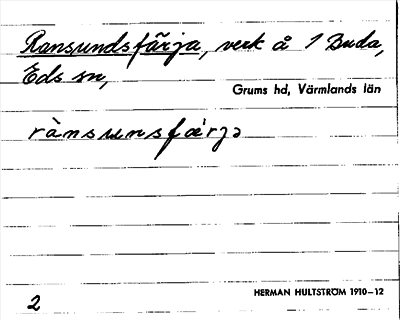 Ransundsfärja, verk å 1 Buda,
Eds sn,
Grums hd, Värmlands län
rànsunsfærja
HERMAN HULTSTRÖM 1910–12
2